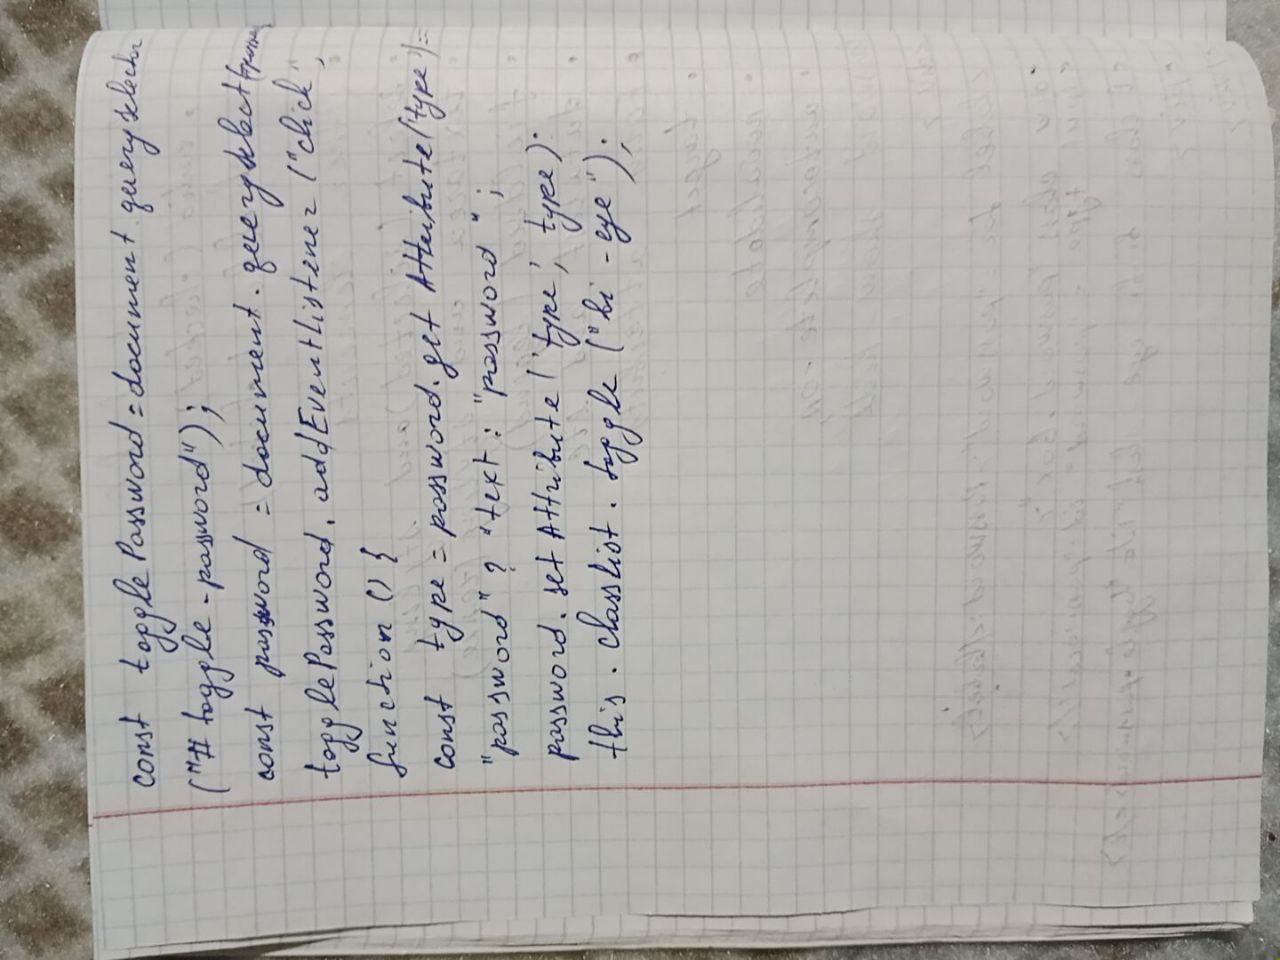 const togglePassword = document.querySelector
("#toggle-password");
const password = document.querySelect
togglePassword.addEventListener ("click",
function () {
const type = password.getAttribute('type') =
"password" ? "text" : "password";
password.setAttribute('type', type).
this.classList.toggle ("bi-eye");